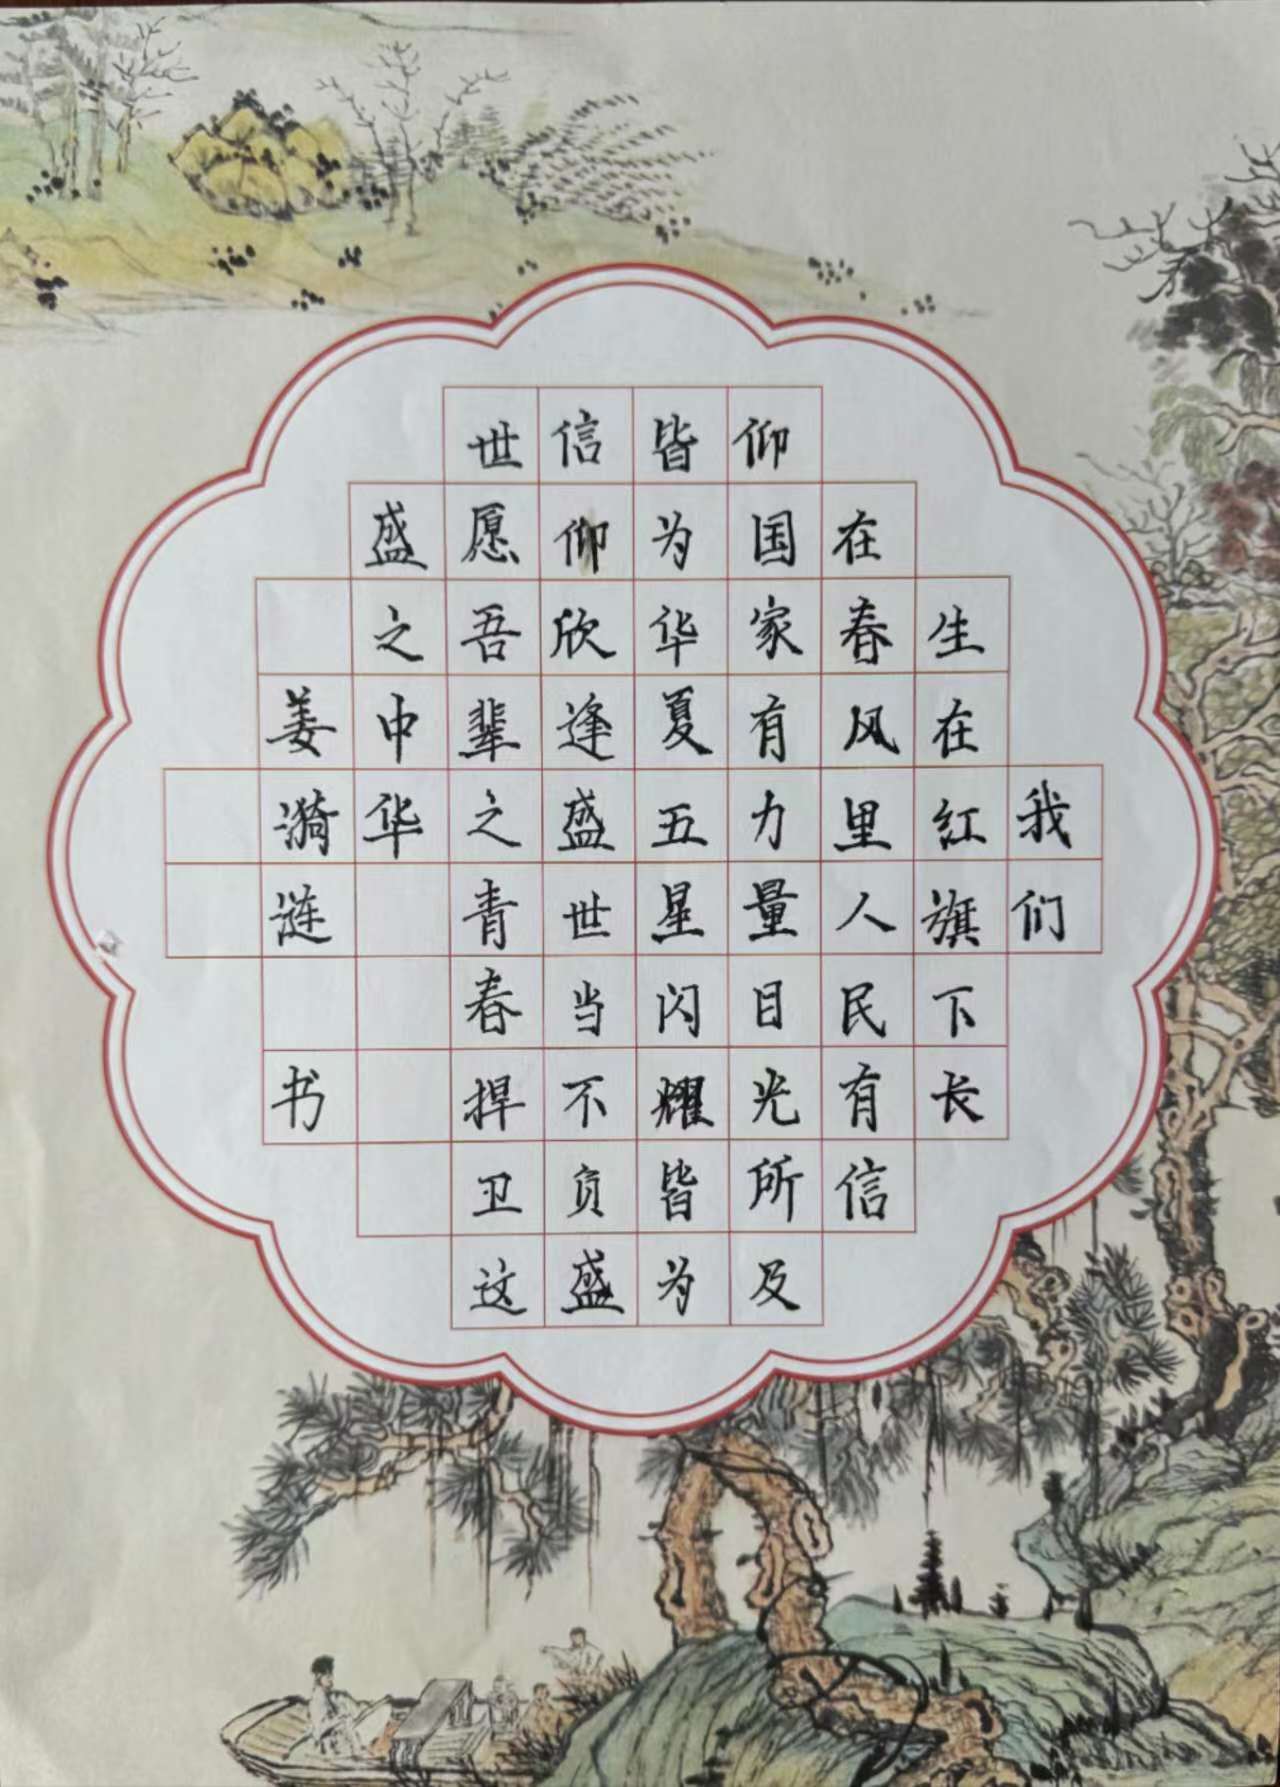 我们
生在红旗下长
在春风里人民有信
仰国家有力量目光所及
皆为华夏五星闪耀皆为
信仰欣逢盛世当不负盛
世愿吾辈之青春捍卫这
盛之中华
姜漪涟书